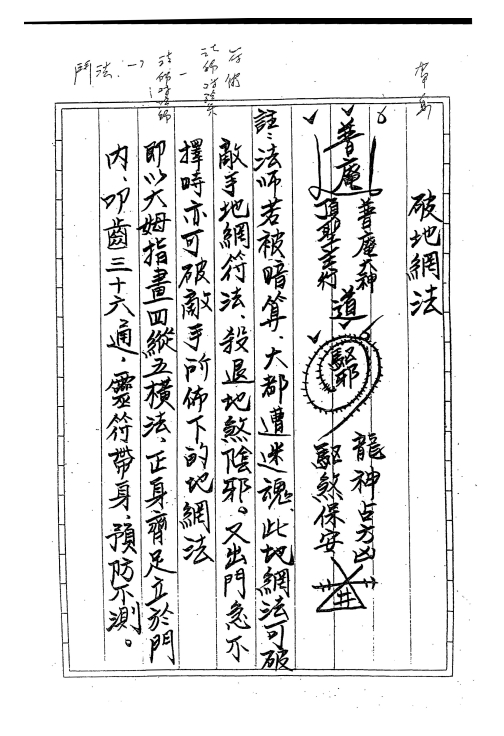 破地網法
普庵
普庵大神
頂聖主行
道
驅邪
龍神占方凶
驅煞保安
井
註：法師若被暗算、大都遭迷魂、此地網法可破
敵手地網符法、殺退地煞陰邪。又出門急不
擇時亦可破敵手所佈下的地網法
即以大姆指畫四縱五橫法、正身齊足立於門
內、叩齒三十六通、靈符帶身、預防不測。
鬥法